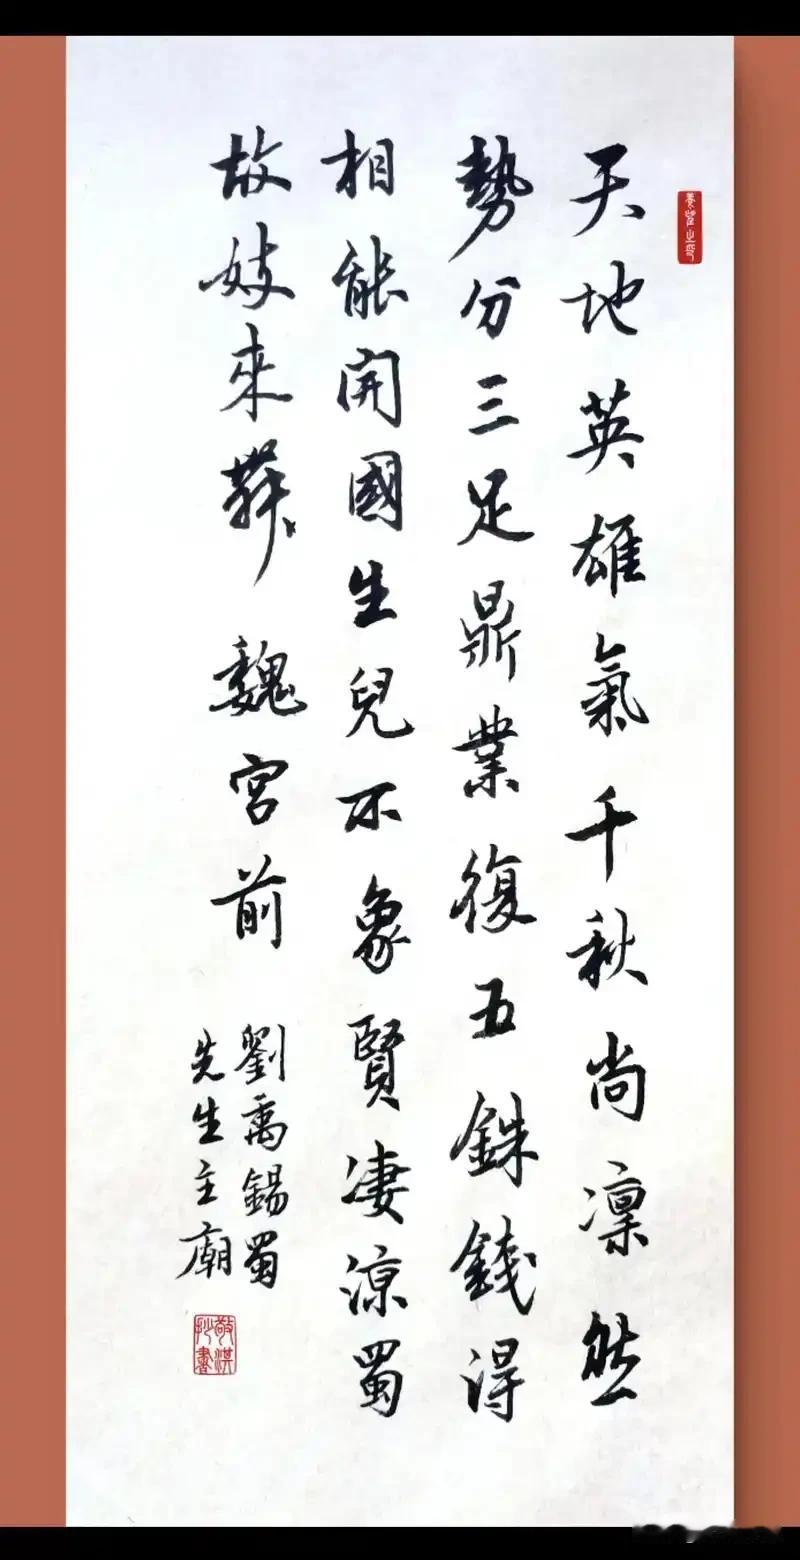 天地英雄氣千秋尚凛然
勢分三足鼎業復五銖錢得
相能開國生兒不象賢凄涼蜀
故妓來舞魏宮前
劉禹錫蜀
先生主廟
敬淇
抄書